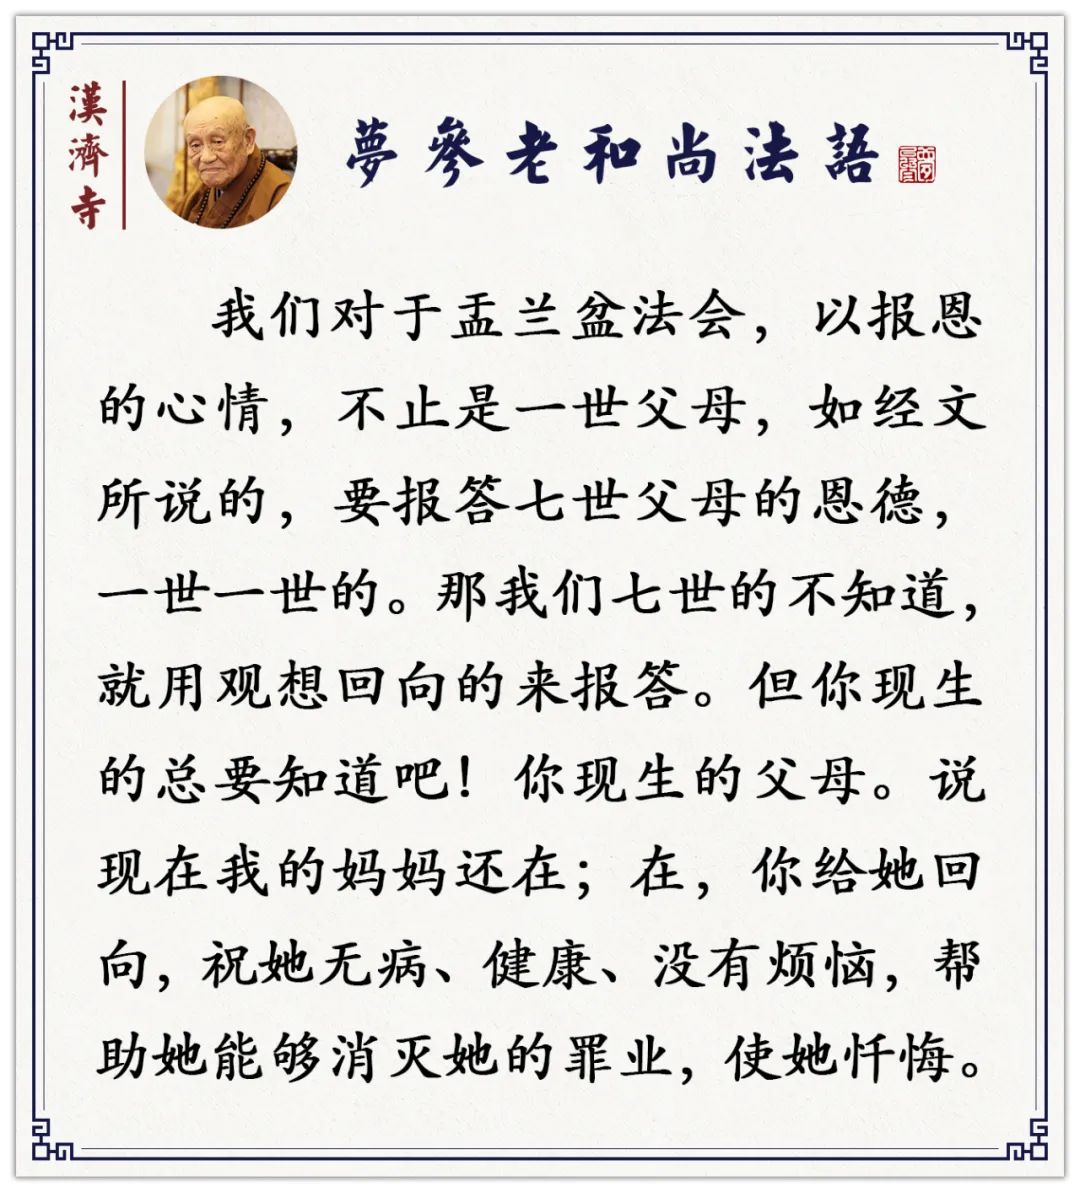 漢濟寺
夢參老和尚法語
我们对于盂兰盆法会，以报恩
的心情，不止是一世父母，如经文
所说的，要报答七世父母的恩德，
一世一世的。那我们七世的不知道，
就用观想回向的来报答。但你现生
的总要知道吧！你现生的父母。说
现在我的妈妈还在；在，你给她回
向，祝她无病、健康、没有烦恼，帮
助她能够消灭她的罪业，使她忏悔。